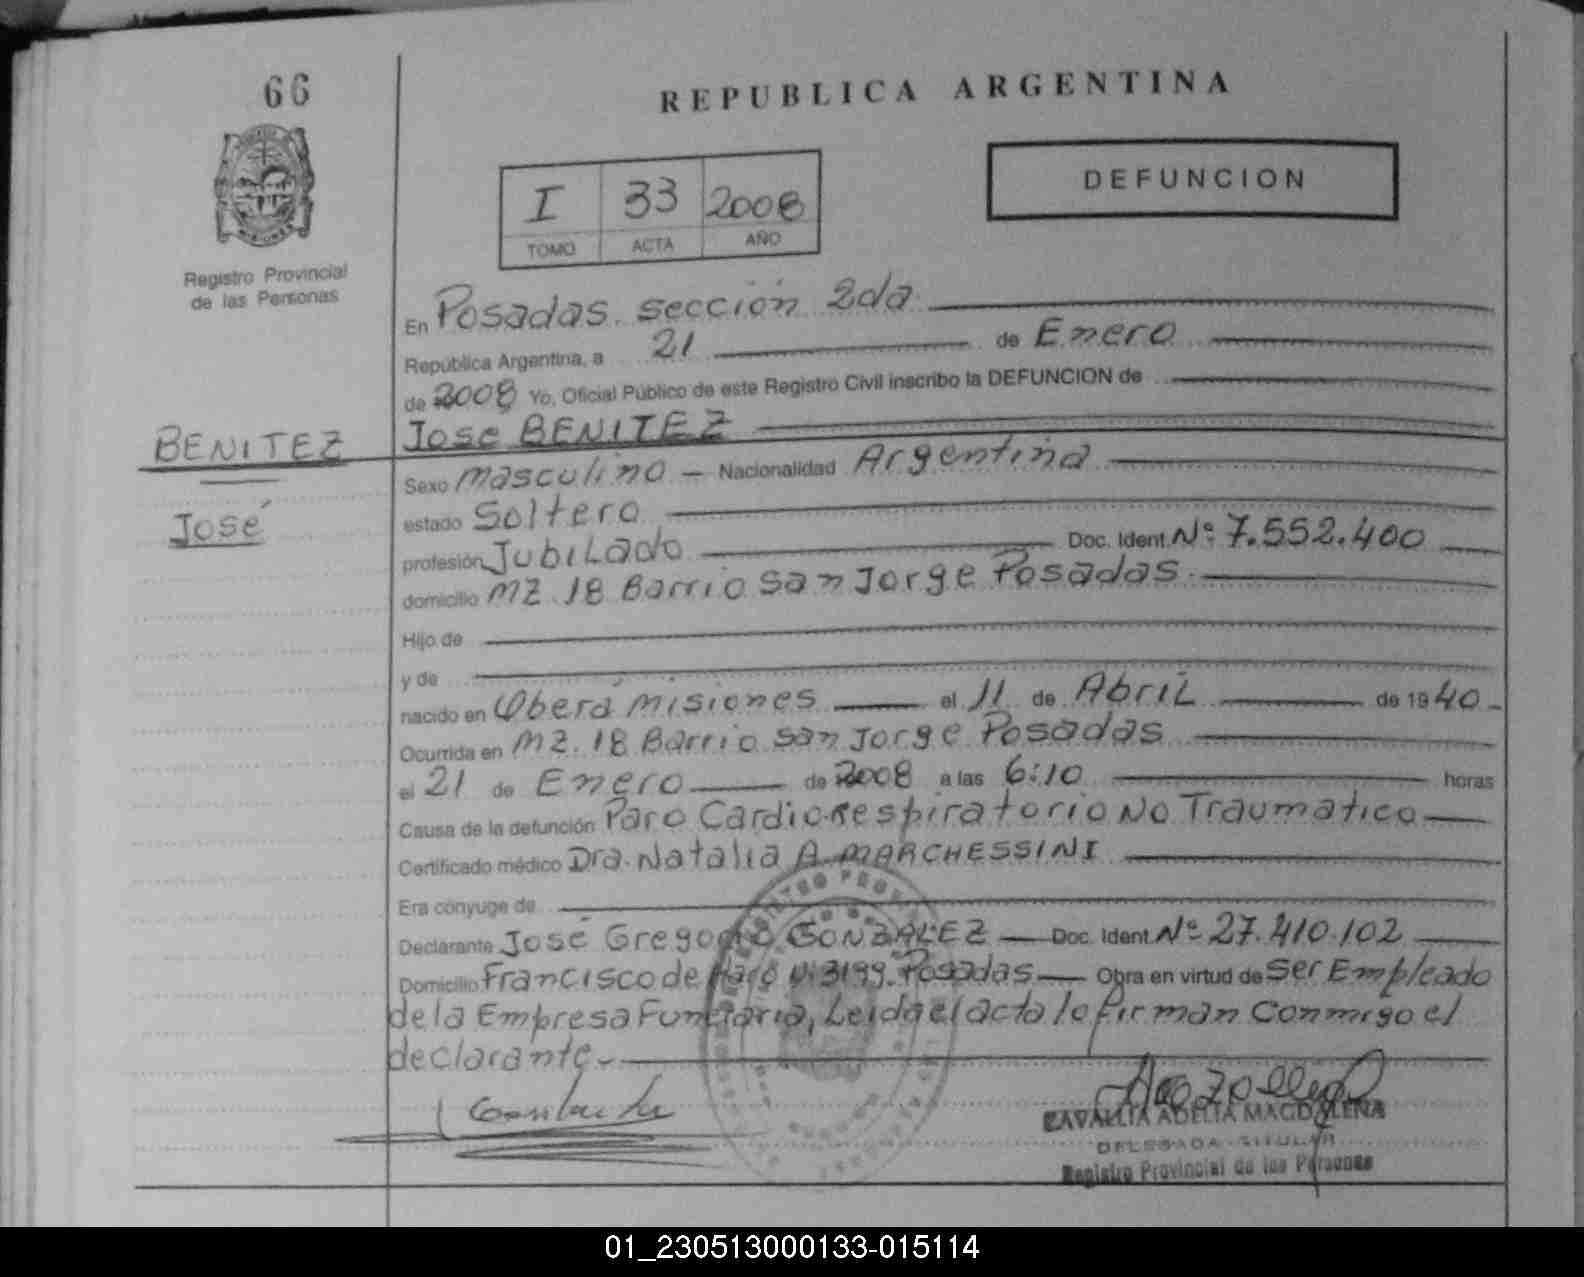 66
REPUBLICA ARGENTINA
DEFUNCION
I 33 2008
TOMO ACTA AÑO
MISIONES
Registro Provincial
de las Personas
En Posadas sección 2da
República Argentina, a 21 de Enero
de 2008 Yo, Oficial Público de este Registro Civil inscribo la DEFUNCION de
BENITEZ
José
Jose BENITEZ
Sexo masculino - Nacionalidad Argentina
estado Soltero
profesión Jubilado Doc. Ident. Nº 7.552.400
domicilio MZ 18 Barrio San Jorge Posadas
Hijo de
y de
nacido en Oberá misiones el 11 de Abril de 1940
Ocurrida en MZ. 18 Barrio San Jorge Posadas
el 21 de Enero de 2008 a las 6:10 horas
Causa de la defunción Paro Cardiorespiratorio No Traumatico
Certificado médico Dra. Natalia A MARCHESSINI
Era cónyuge de
Declarante José Gregorio GONZALEZ Doc. Ident. Nº 27.410.102
Domicilio Francisco de Haro Nº 3199. Posadas Obra en virtud de Ser Empleado
de la Empresa Funeraria, Leida el acta lo firman Conmigo el
declarante.
ADELIA MAGDALENA
DELEGADA TITULAR
Registro Provincial de las Personas
01_230513000133-015114